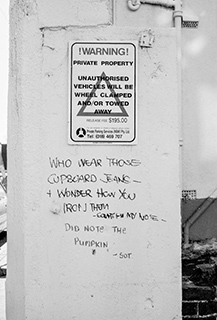 !WARNING!
PRIVATE PROPERTY
UNAUTHORISED
VEHICLES WILL BE
WHEEL CLAMPED
AND/OR TOWED
AWAY
RELEASE FEE $195.00
Private Parking Services (NSW) Pty. Ltd.
Tel (018) 469 707
WHO WEAR THOSE
CUPBOARD JEANS -
I WONDER HOW YOU
IRON THEM
MY NOTE -
DID NOTE THE
PUMPKIN